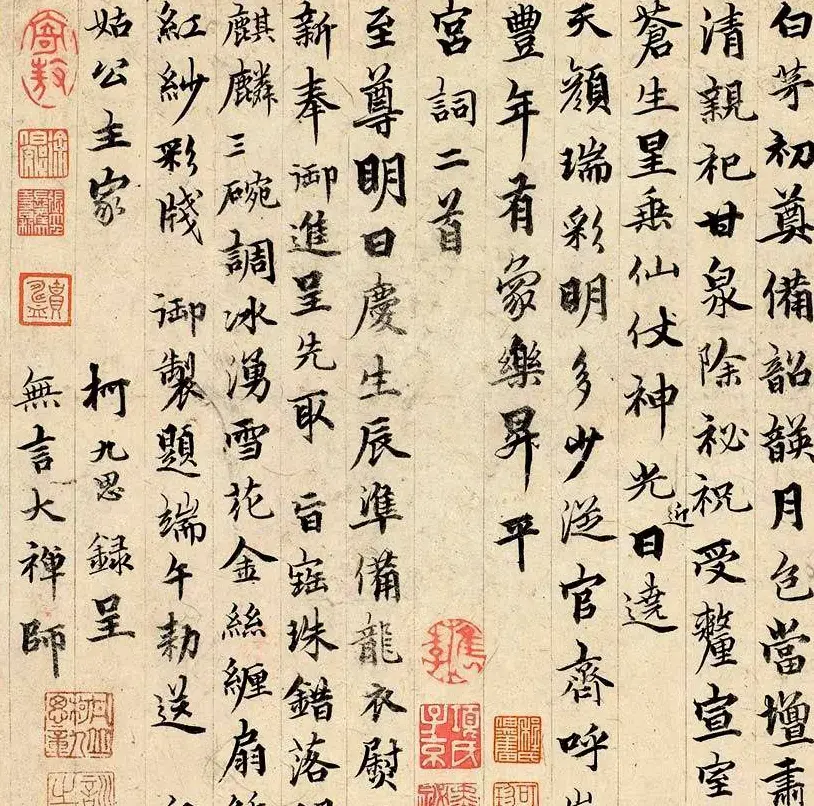 白茅初奠備韶韺月色當壇肅
清親祀甘泉除祕祝受釐宣室
蒼生星垂仙仗神光近日遶
天顏瑞彩明多少從官齊呼
豐年有象樂昇平
宮詞二首
至尊明日慶生辰準備龍衣熨
新奉御進呈先取 旨窰珠錯落
麒麟三碗調冰湧雪花金絲纏扇
紅紗彩牋 御製題端午勑送
姑公主家
柯九思錄呈
無言大禪師
項氏子京